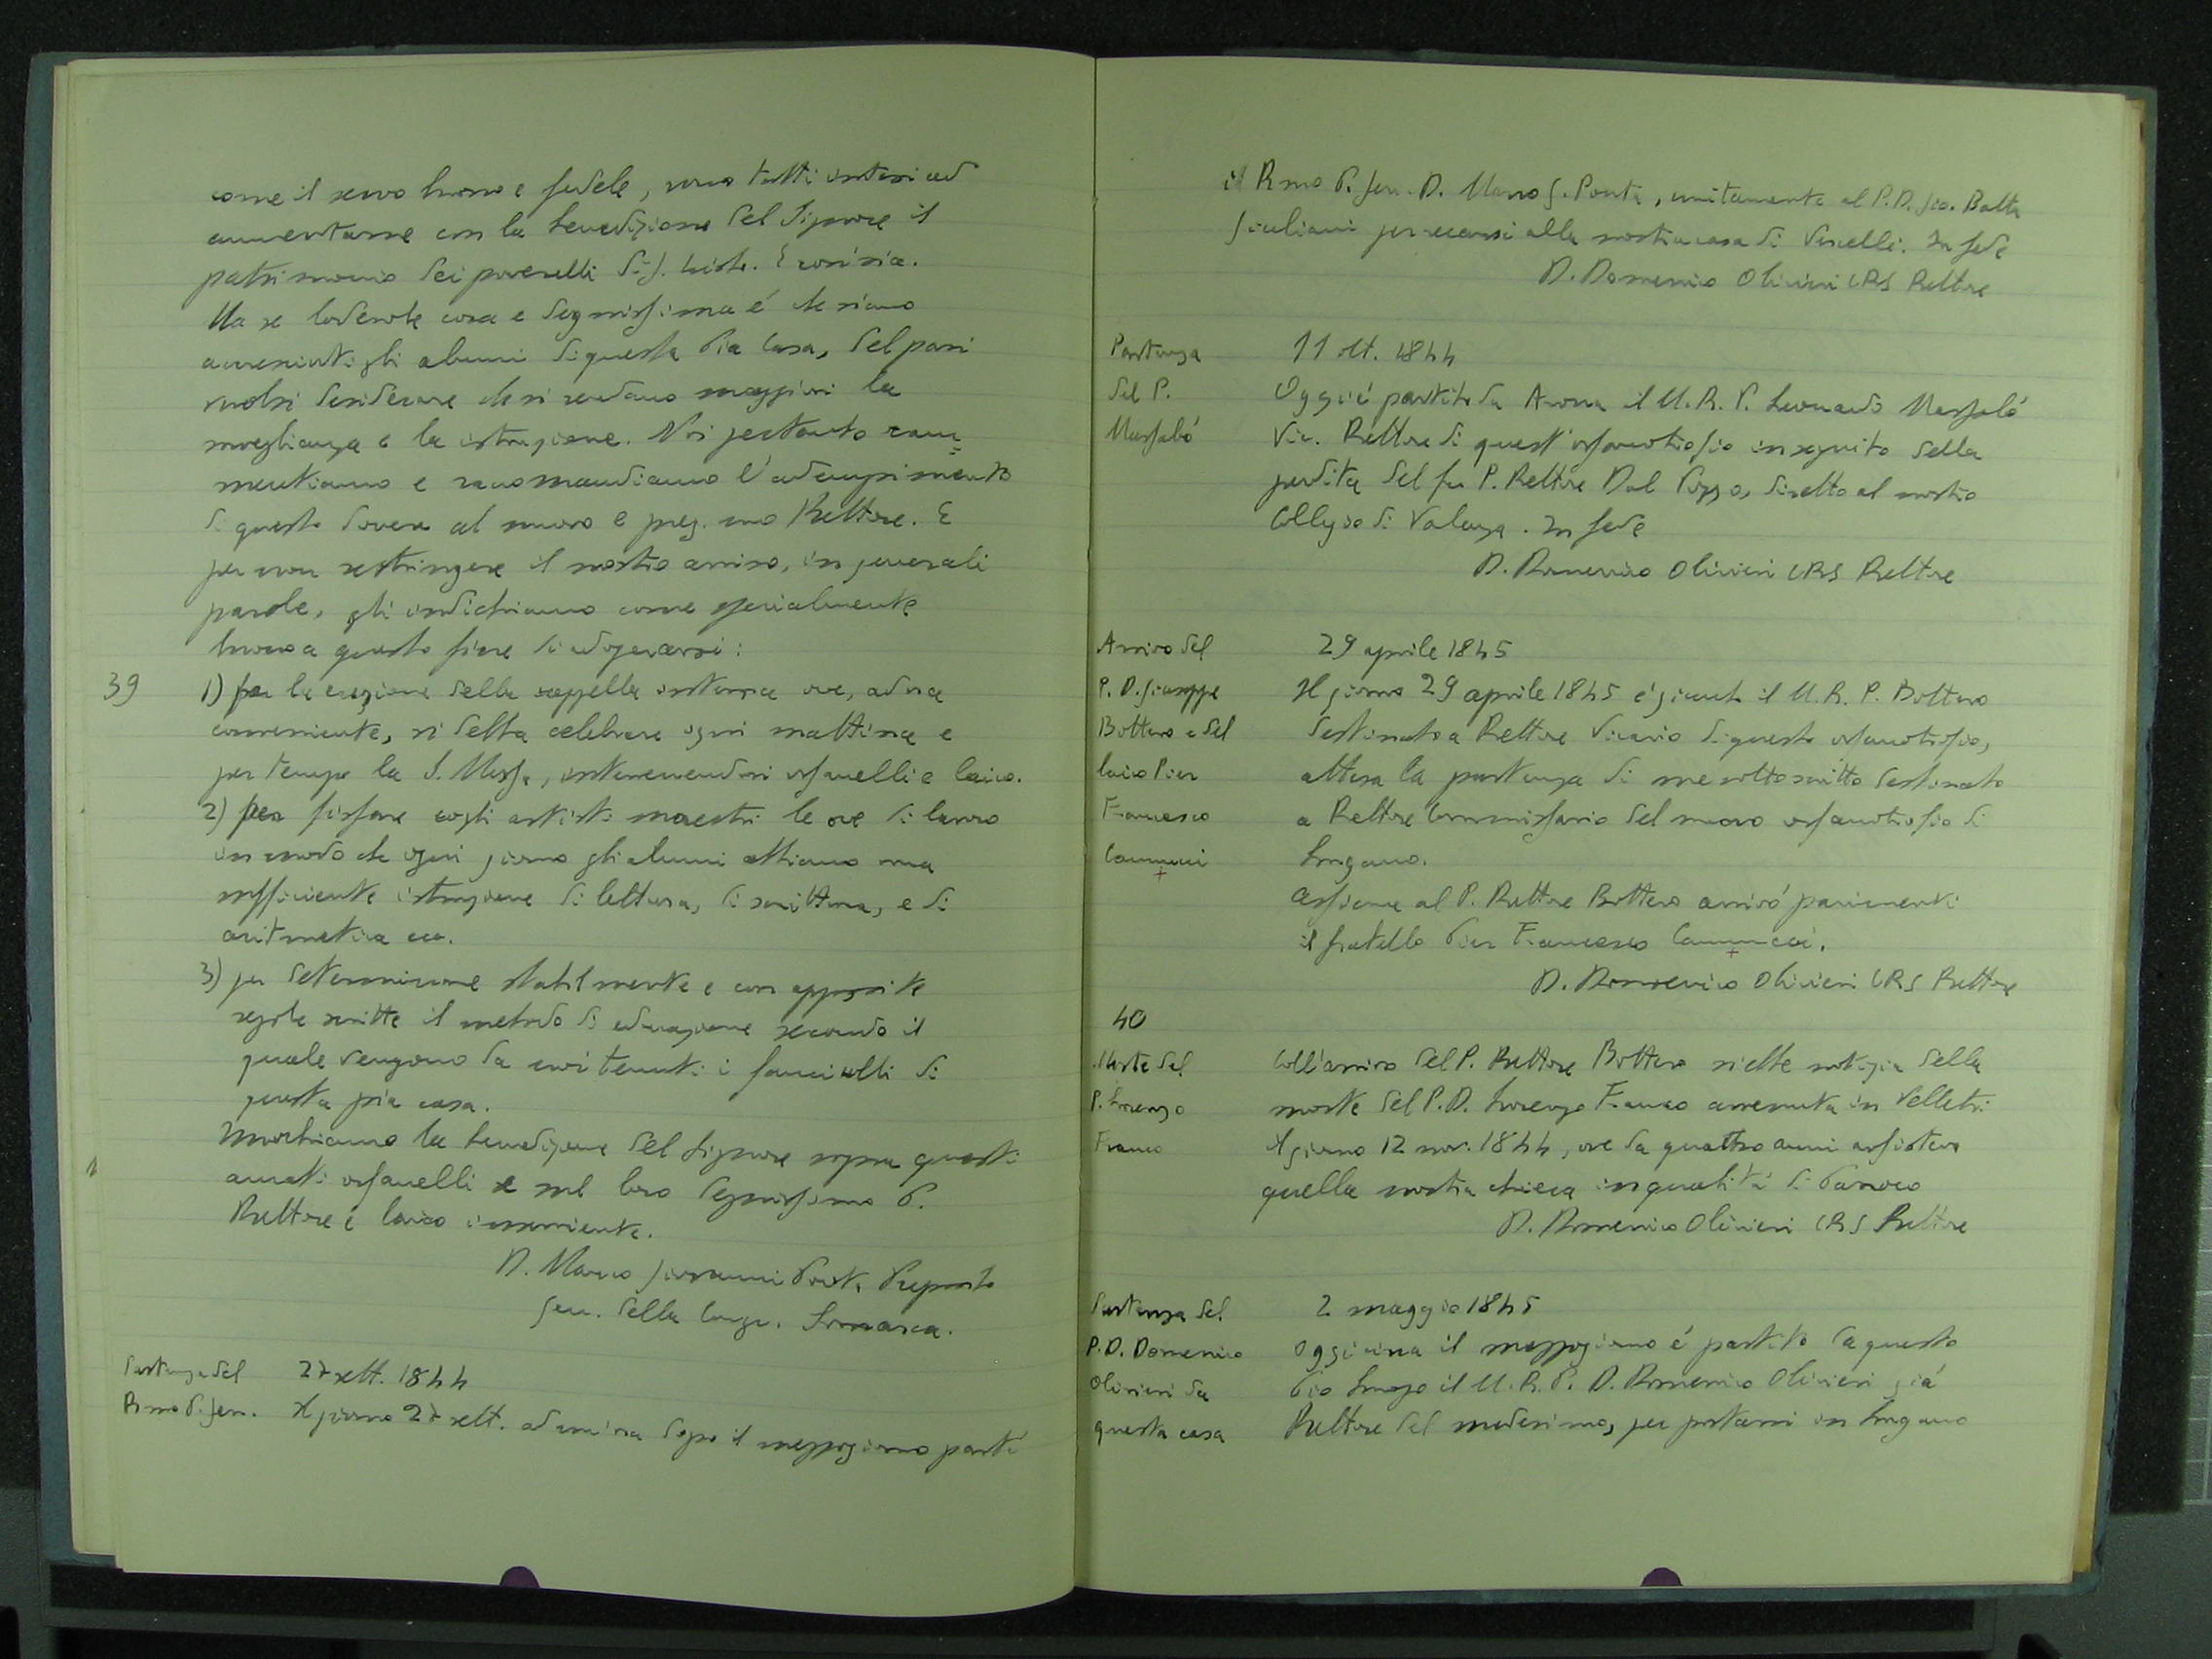 come il servo buono e fedele, sono tutti intesi ad
aumentarne con la benedizione del Signore il
patrimonio dei poverelli di G. Cristo. E così sia.
Ma se lodevole cosa e degnissima é che siano
accresciuti gli alunni di questa Pia Casa, del pari
vuolsi desiderare che si rendano maggiori la
sveglianza e la istruzione. Noi pertanto ram=
mentiamo e raccomandiamo l'adempimento
di questo dovere al nuovo e preg.mo Rettore. E
per non restringere il nostro avviso, in generali
parole, gli indichiamo come specialmente
buono a questo fine di adoperarsi:
39
1) per la erezione della cappella interna ove, ad ora
conveniente, si debba celebrare ogni mattina e
per tempo la S. Messa, intervenendovi orfanelli e laico.
2) per fissare cogli artisti maestri le ore di lavoro
in modo che ogni giorno gli alunni abbiano una
sufficiente istruzione di lettura, di scrittura, e di
aritmetica ecc.
3) per determinare stabilmente e con apposite
regole scritte il metodo di educazione secondo il
quale vengono da noi tenuti i fanciulli di
questa pia casa.
Invochiamo la benedizione del Signore sopra questi
amati orfanelli e sul loro degnissimo P.
Rettore e laico inserviente.
D. Marco Giovanni Ponta Preposto
Gen. della Congr. Somasca.
Partenza del
Rmo P. Gen.
27 sett. 1844
Il giorno 27 sett. ad un'ora dopo il mezzogiorno partì
il Rmo P. Gen. D. Marco G. Ponta, unitamente al P.D. Gio. Batta
Giuliani per recarsi alla nostra casa di Vercelli. In fede
D. Domenico Olivieri CRS Rettore
Partenza
del P.
Massabó
11 ott. 1844
Oggi é partito da Arona il M.R.P. Leonardo Massabó
Vic. Rettore di quest'orfanotrofio in seguito della
perdita del fu P. Rettore Dal Pozzo, diretto al nostro
Collegio di Valenza. In fede
D. Domenico Olivieri CRS Rettore
Arrivo del
P. D. Giuseppe
Bottero e del
laico Pier
Francesco
29 aprile 1845
Il giorno 29 aprile 1845 é giunto il M.R.P. Bottero
destinato a Rettore Vicario di questo orfanotrofio,
attesa la partenza di me sottoscritto destinato
a Rettore Commissario del nuovo orfanotrofio di
Lugano.
Assieme al P. Rettore Bottero arrivó parimenti
il fratello Pier Francesco
D. Domenico Olivieri CRS Rettore
40
Morte del
P. Lorenzo
Franco
Coll'arrivo del P. Rettore Bottero si ebbe notizia della
morte del P.D. Lorenzo Franco avvenuta in Velletri
il giorno 12 nov. 1844, ove da quattro anni assisteva
quella nostra chiesa in qualitá di Parroco
D. Domenico Olivieri CRS Rettore
Partenza del
P.D. Domenico
Olivieri da
questa casa
2 maggio 1845
Oggi circa il mezzogiorno é partito da questo
Pio Luogo il M.R.P. D. Domenico Olivieri giá
Rettore del medesimo, per portarsi in Lugano